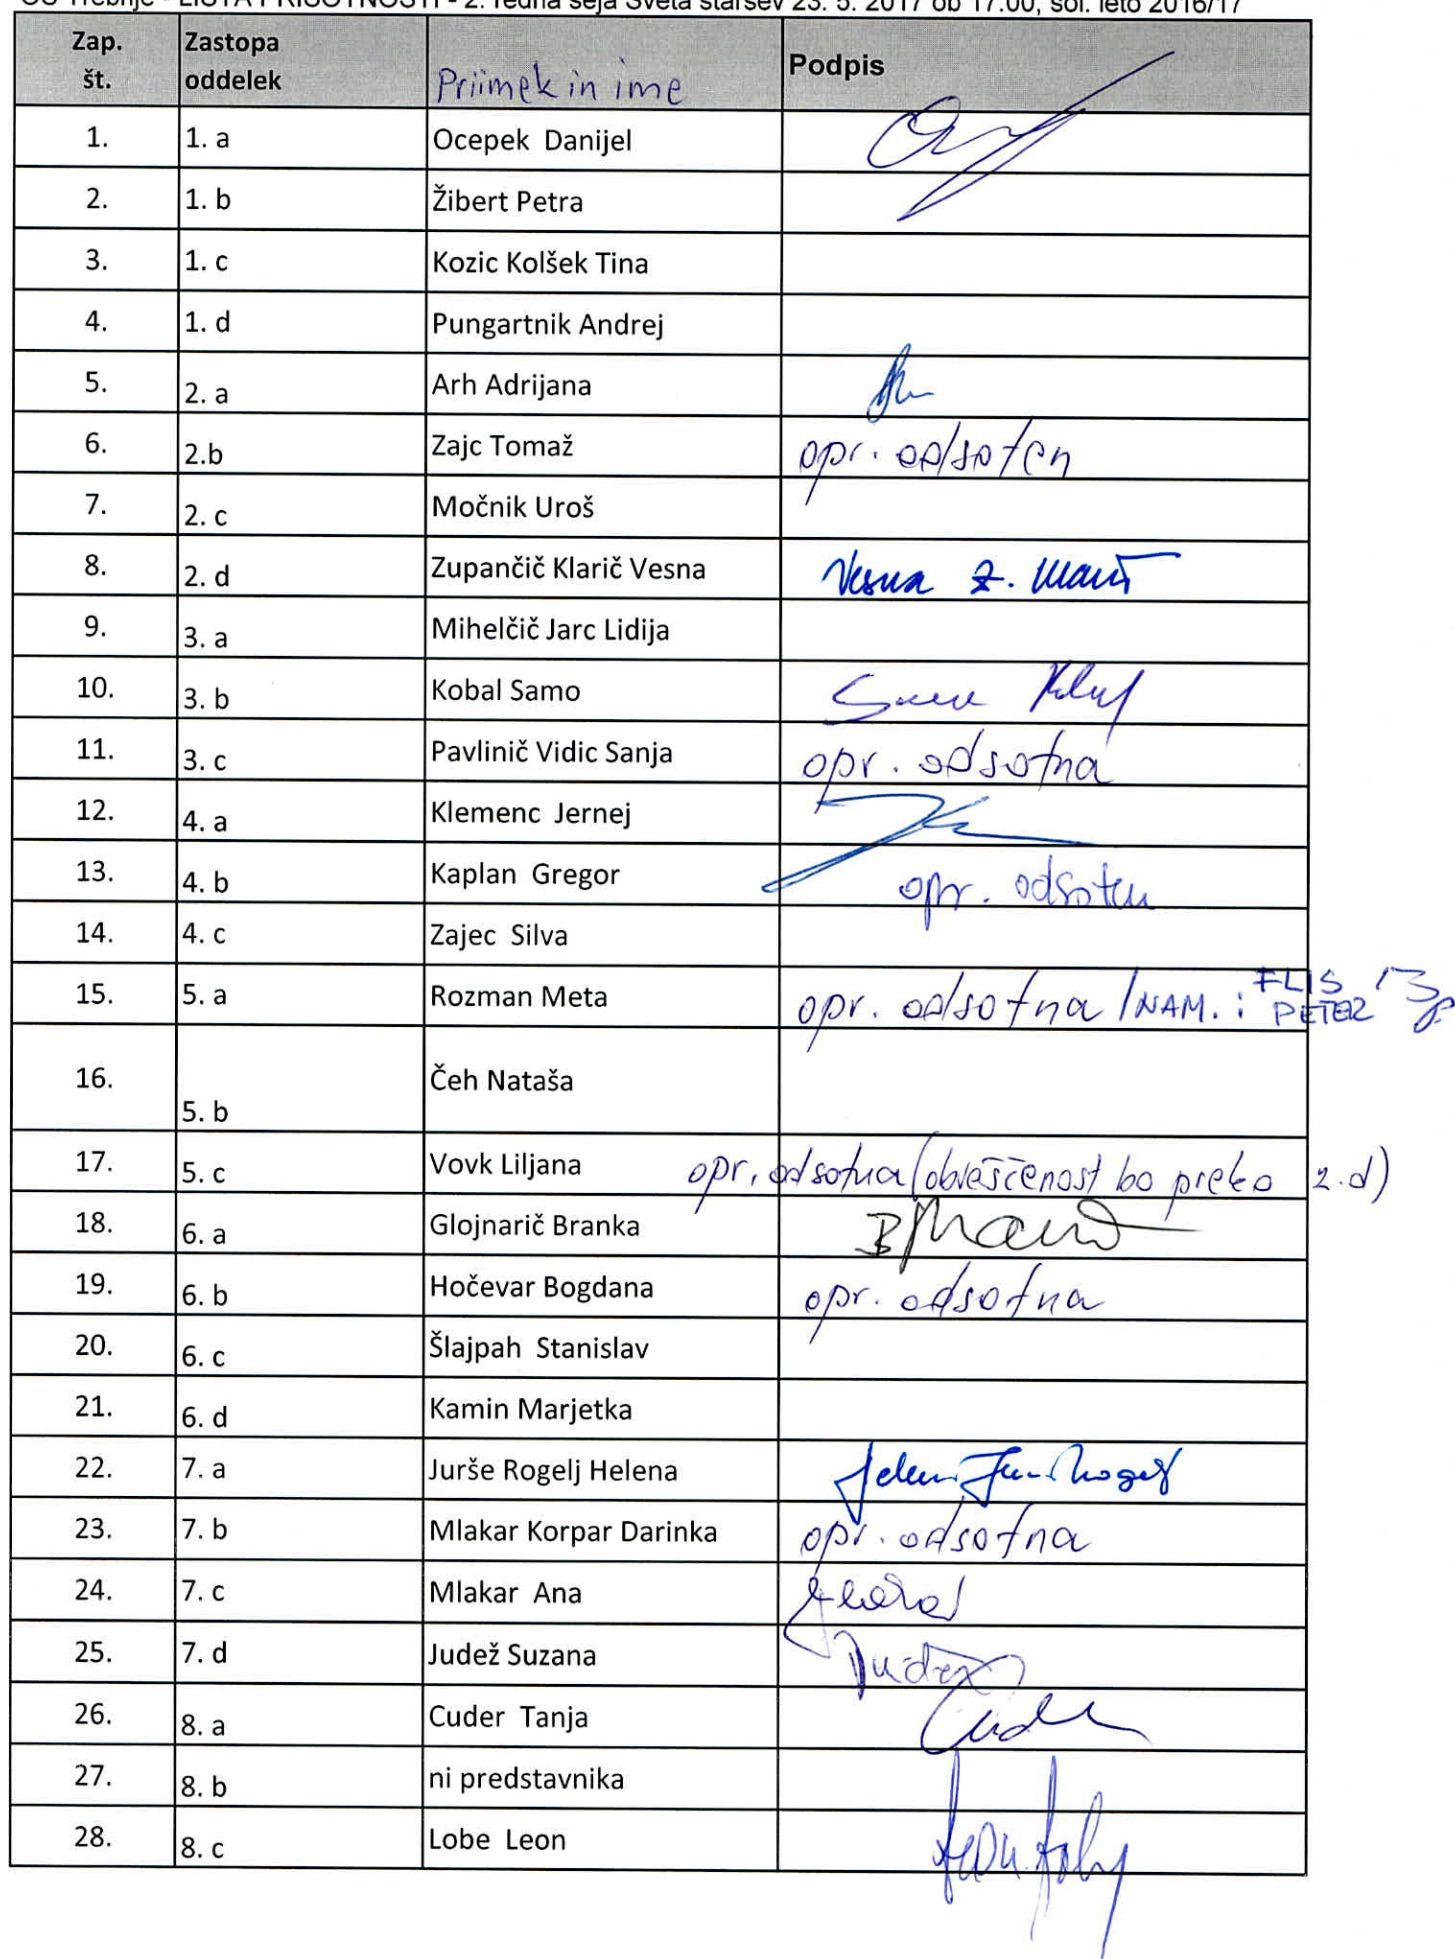 OŠ Trebnje - LISTA PRISOTNOSTI - 2. redna seja Sveta staršev 23. 5. 2017 ob 17.00, šol. leto 2016/17
Zap. št. Zastopa oddelek Priimek in ime Podpis
1. 1. a Ocepek Danijel
2. 1. b Žibert Petra
3. 1. c Kozic Kolšek Tina
4. 1. d Pungartnik Andrej
5. 2. a Arh Adrijana
6. 2.b Zajc Tomaž opr. odsoten
7. 2. c Močnik Uroš
8. 2. d Zupančič Klarič Vesna Vesna Z.
9. 3. a Mihelčič Jarc Lidija
10. 3. b Kobal Samo
11. 3. c Pavlinič Vidic Sanja opr. odsotna
12. 4. a Klemenc Jernej
13. 4. b Kaplan Gregor opr. odsoten
14. 4. c Zajec Silva
15. 5. a Rozman Meta opr. odsotna /NAM. : FLIS PETER
16. 5. b Čeh Nataša
17. 5. c Vovk Liljana opr. odsotna (obveščenost bo preko 2.d)
18. 6. a Glojnarič Branka
19. 6. b Hočevar Bogdana opr. odsotna
20. 6. c Šlajpah Stanislav
21. 6. d Kamin Marjetka
22. 7. a Jurše Rogelj Helena
23. 7. b Mlakar Korpar Darinka opr. odsotna
24. 7. c Mlakar Ana
25. 7. d Judež Suzana Judež
26. 8. a Cuder Tanja Cuder
27. 8. b ni predstavnika
28. 8. c Lobe Leon